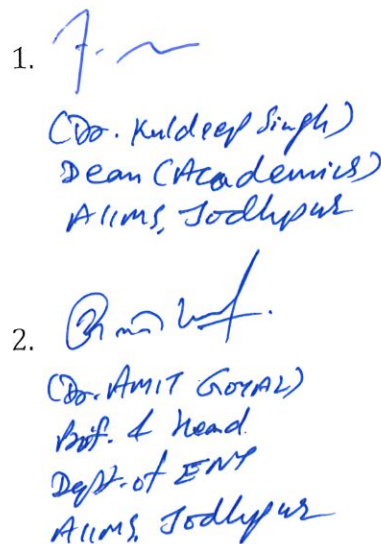 1.
(Dr. Kuldeep Singh)
Dean (Academics)
AIIMS, Jodhpur
2.
(Dr. AMIT GOYAL)
Prof. & Head
Deptt. of ENT
AIIMS, Jodhpur